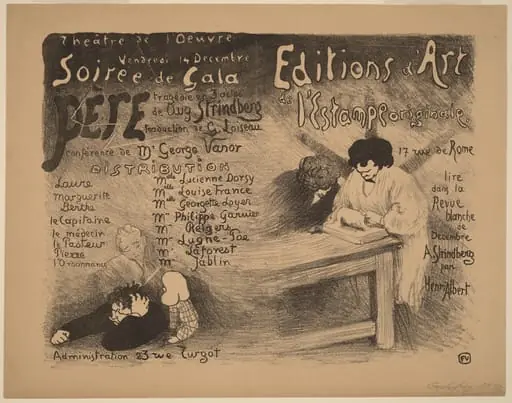 Théâtre de l'Oeuvre
Vendredi 14 Decembre
Soirée de Gala
PÈRE
tragédie en 3 actes
de Aug Strindberg
traduction de G. Loiseau
conférence de Mr George Vanor
DISTRIBUTION
Laure Mlle Lucienne Dorsy
Marguerite Mlle Louise France
Berthe Mlle Georgette Loyer
le Capitaine Mr Philippe Garnier
le médecin Mr Reigers
le Pasteur Mr Lugné-Poe
Pierre Mr Laforest
l'Ordonnance Mr Jablin
Administration 23 rue Turgot
Editions d'Art
de l'Estampe originale
17 rue de Rome
lire
dans la
Revue
blanche
de
Décembre
A Strindberg
par
Henri Albert
FV